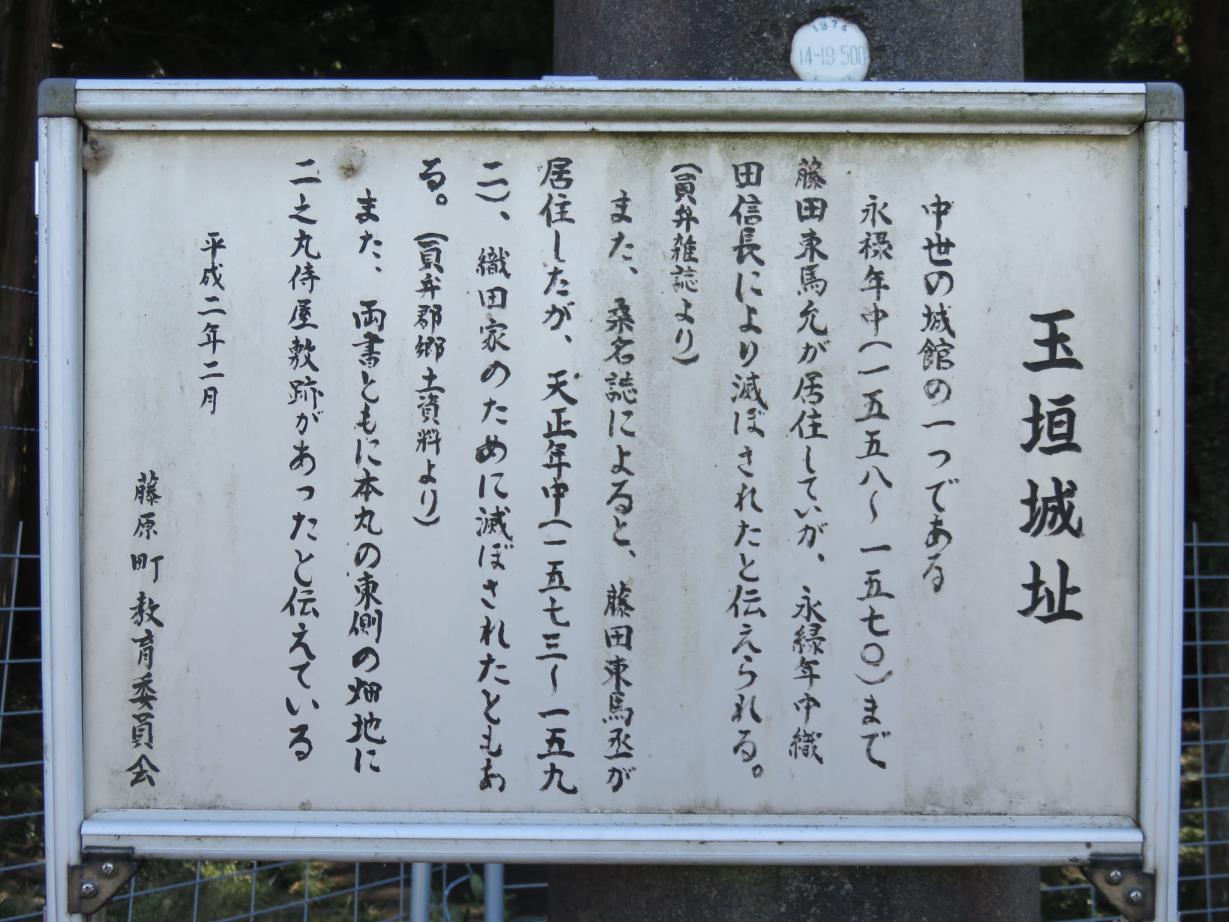 1974
14-19 500
玉垣城址
中世の城館の一つである
永禄年中(一五五八〜一五七〇)まで
藤田東馬允が居住していが、永緑年中織
田信長により滅ぼされたと伝えられる。
(員弁雑誌より)
また、桑名誌によると、藤田東馬丞が
居住したが、天正年中(一五七三〜一五九
二)、織田家のために滅ぼされたともあ
る。(員弁郡郷土資料より)
また、両書ともに本丸の東側の畑地に
二之丸侍屋敷跡があったと伝えている
平成二年二月
藤原町教育委員会